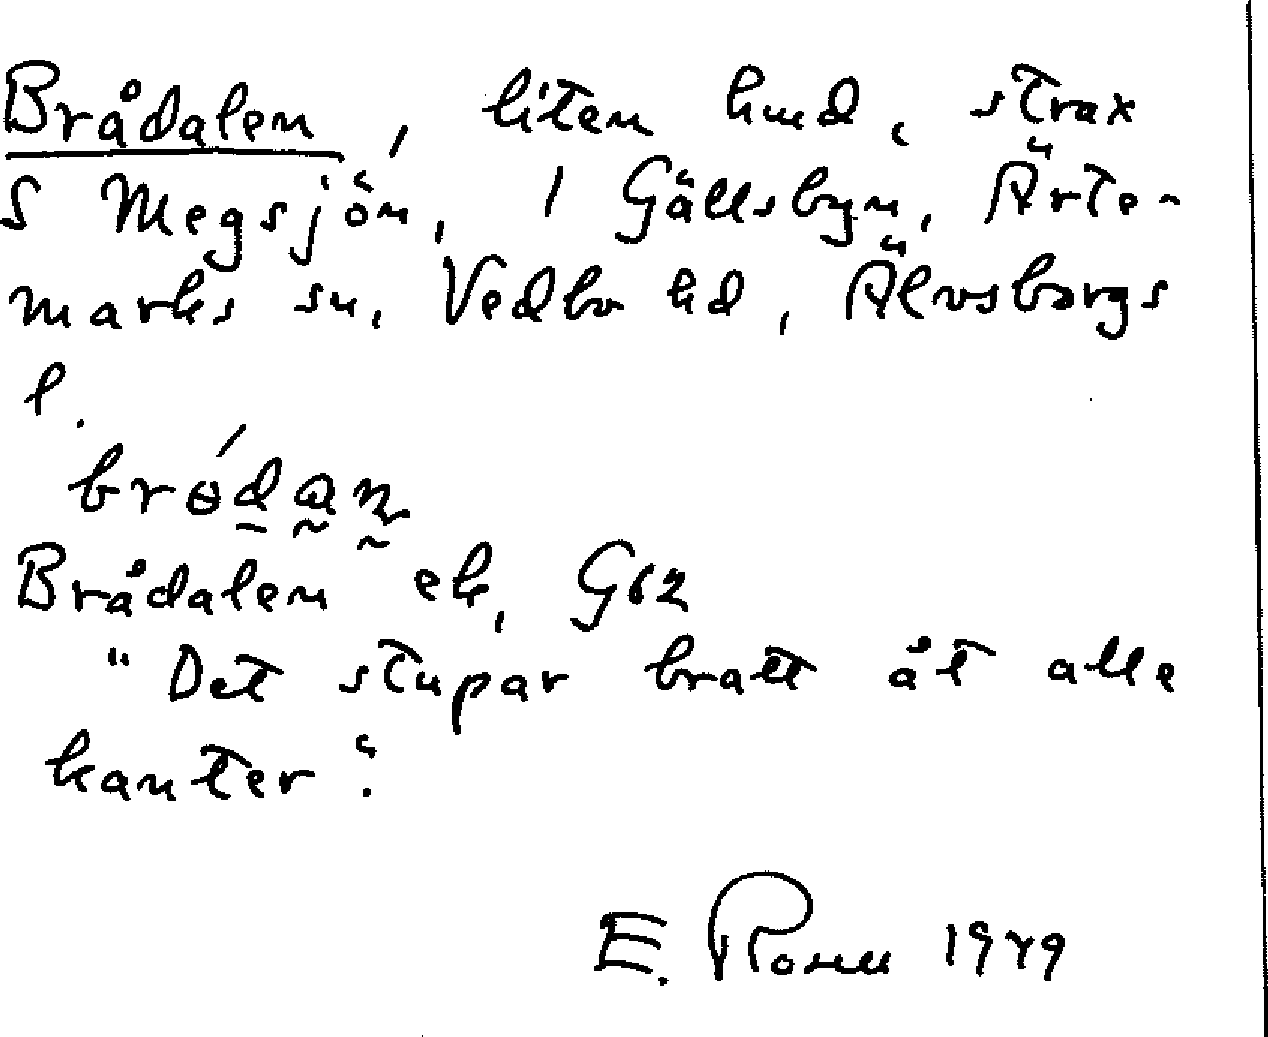 Brådalen, liten lind, strax
S Megsjön, i Gällsbyn, Ärte-
marks sn, Vedbo hd, Älvsborgs
l.
Brådalen ek, G62
"Det stupar bratt åt alle
kanter".
E. Rosell 1979